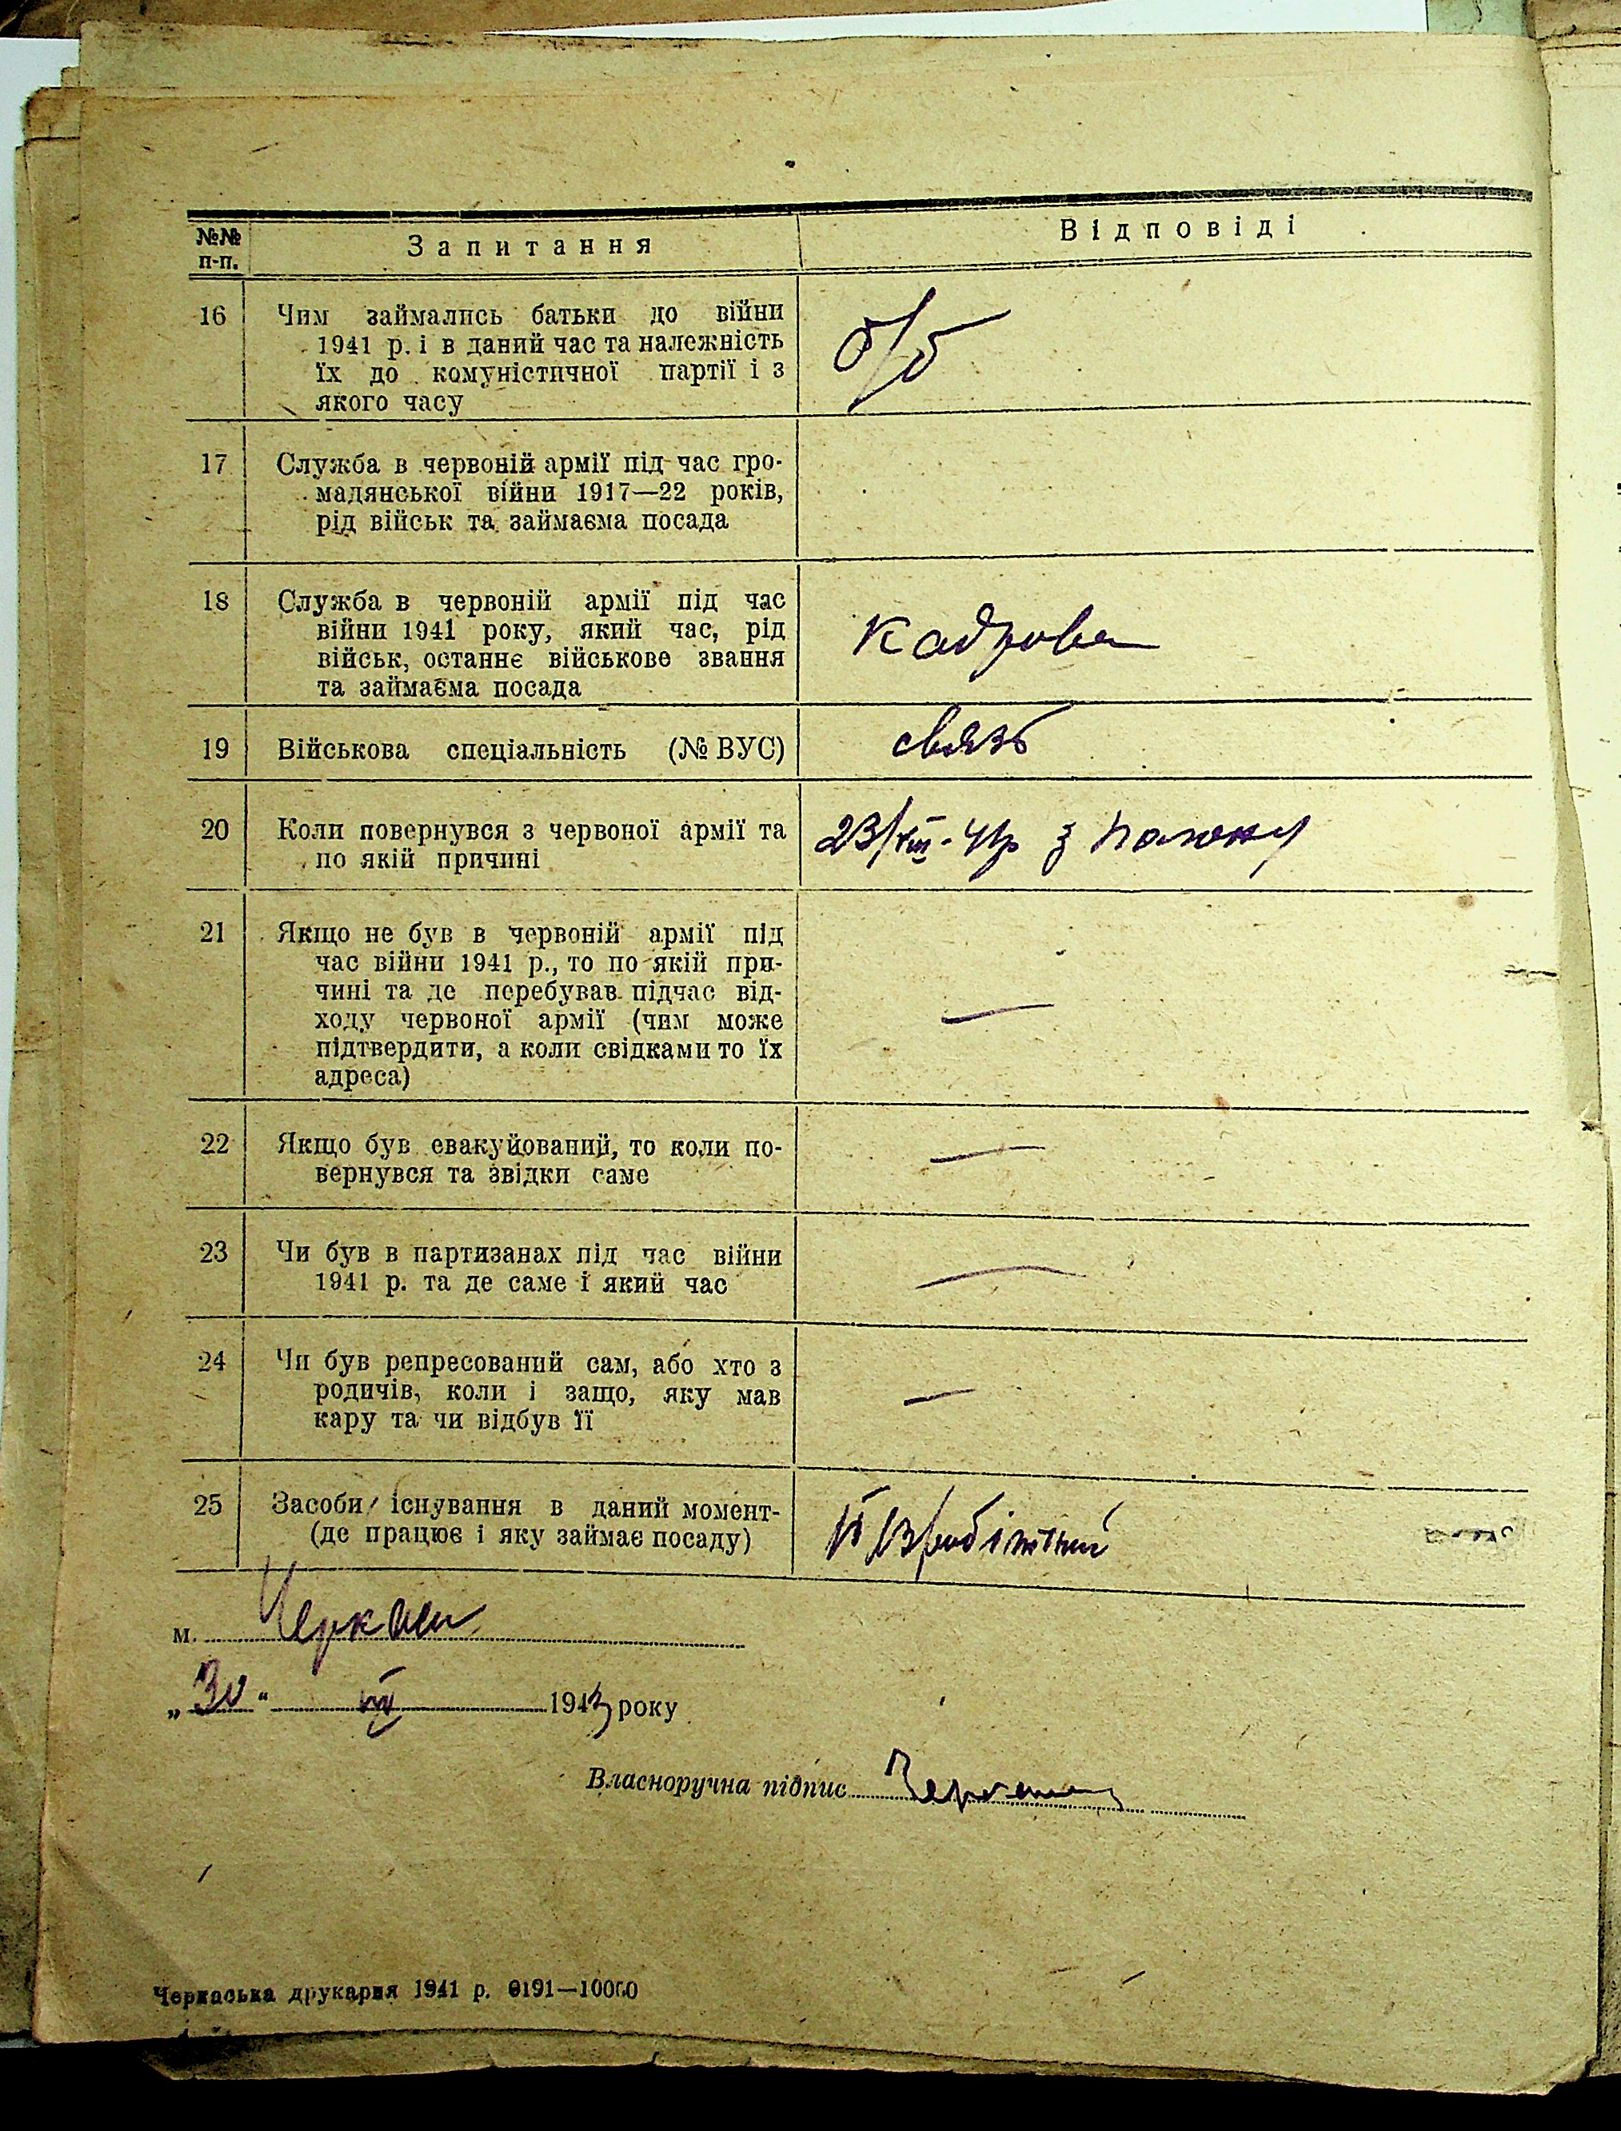 №№ п-п. Запитання Відповіді
16 Чим займались батьки до війни
1941 р. і в даний час та належність
їх до комуністичної партії і з
якого часу
б/б
17 Служба в червоній армії під час гро-
мадянської війни 1917—22 років,
рід військ та займаєма посада
18 Служба в червоній армії під час
війни 1941 року, який час, рід
військ, останнє військове звання
та займаєма посада
кадрова
19 Військова спеціальність (№ ВУС)
связь
20 Коли повернувся з червоної армії та
по якій причині
23/VIII-41р з полону
21 Якщо не був в червоній армії під
час війни 1941 р., то по якій при-
чині та де перебував підчас від-
ходу червоної армії (чим може
підтвердити, а коли свідками то їх
адреса)
—
22 Якщо був евакуйований, то коли по-
вернувся та звідки саме
—
23 Чи був в партизанах під час війни
1941 р. та де саме і який час
—
24 Чи був репресований сам, або хто з
родичів, коли і защо, яку мав
кару та чи відбув її
—
25 Засоби існування в даний момент-
(де працює і яку займає посаду)
м. Черкаси
„30“ 1943 року
Власноручна підпис
Черкаська друкарня 1941 р. 0191—10000